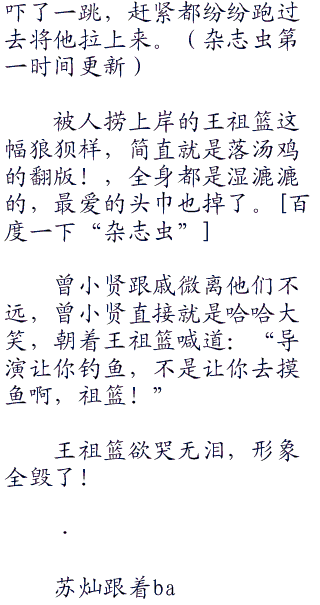 吓了一跳，赶紧都纷纷跑过
去将他拉上来。（杂志虫第
一时间更新）
被人捞上岸的王祖篮这
幅狼狈样，简直就是落汤鸡
的翻版！，全身都是湿漉漉
的，最爱的头巾也掉了。[百
度一下“杂志虫”]
曾小贤跟戚微离他们不
远，曾小贤直接就是哈哈大
笑，朝着王祖篮喊道：“导
演让你钓鱼，不是让你去摸
鱼啊，祖篮！”
王祖篮欲哭无泪，形象
全毁了！
.
苏灿跟着ba